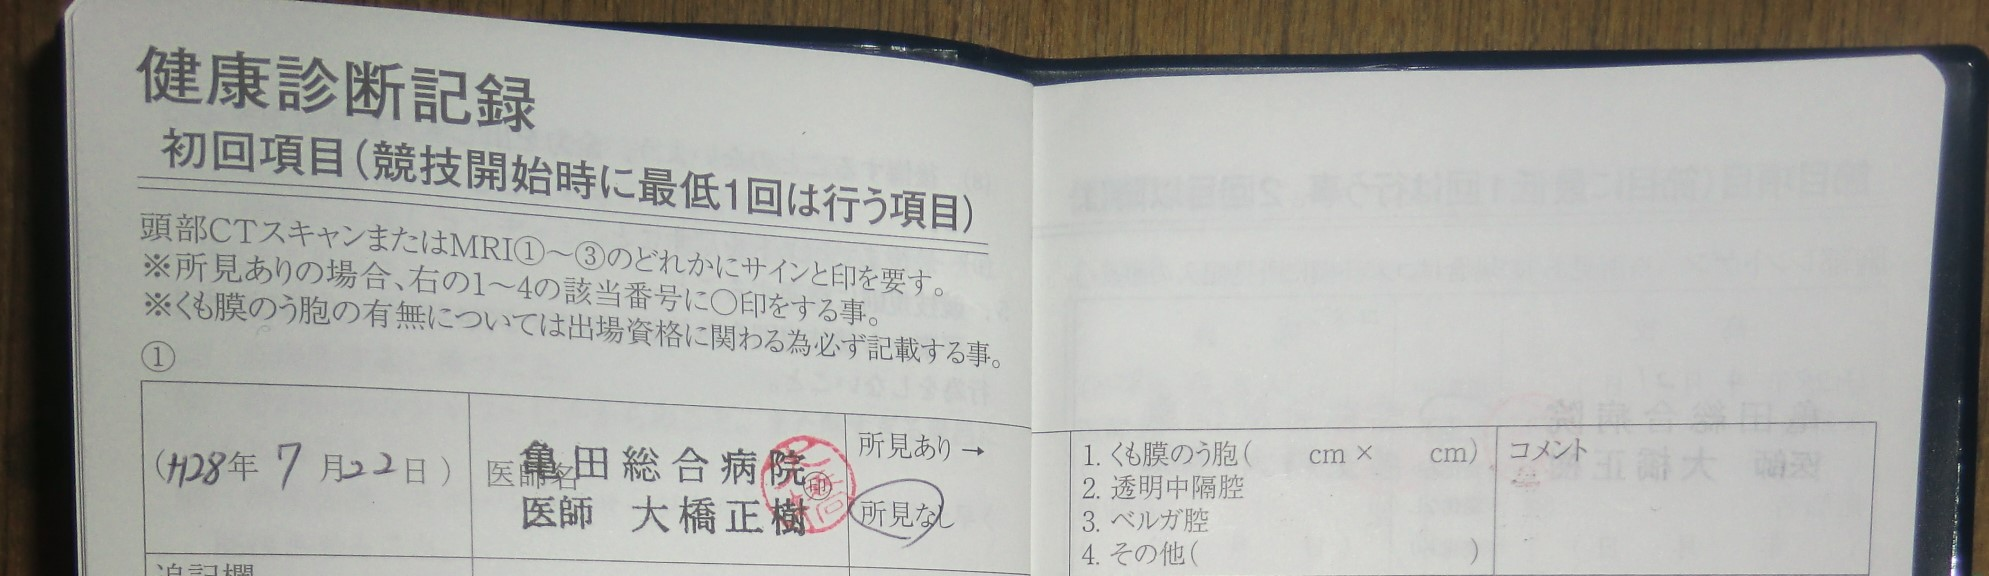 健康診断記録
初回項目(競技開始時に最低1回は行う項目)
頭部CTスキャンまたはMRI①～③のどれかにサインと印を要す。
※所見ありの場合、右の1～4の該当番号に○印をする事。
※くも膜のう胞の有無については出場資格に関わる為必ず記載する事。
①
(H28年 7 月22日)
医師名
亀田総合病院
医師 大橋正樹
印
所見あり→
所見なし
1. くも膜のう胞( cm× cm)
2. 透明中隔腔
3. ベルガ腔
4. その他( )
コメント
追記欄